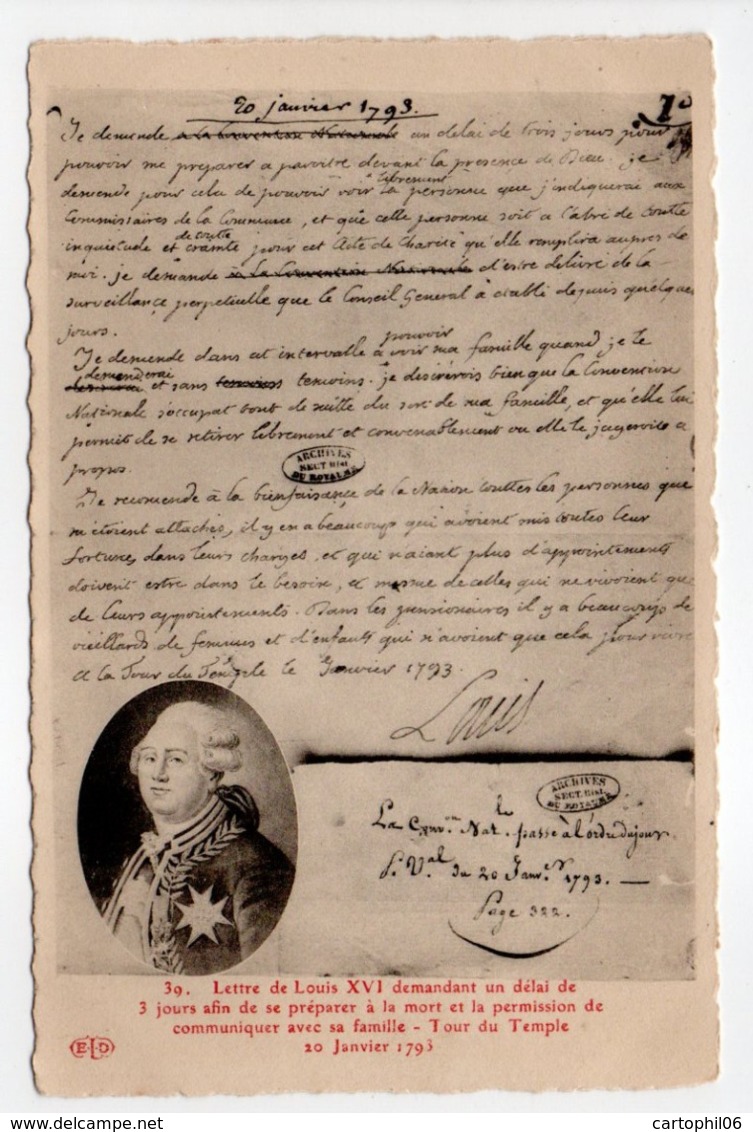 20 janvier 1793.
Je demende a la Convention Nationale un delai de trois jours pour
pouvoir me preparer a paroitre devant la presence de Dieu. je
librement
demende pour cela de pouvoir voir la personne que j'indiquerai aux
Commissaires de la Commune, et que cette personne soit a l'abri de toutte
de toutte
inquietude et crainte pour cet Acte de Charité qu'elle remplira aupres de
moi. je demande a la Convention Nationale d'estre delivré de la
surveillance perpetuelle que le Conseil General à etabli depuis quelques
jours.
pouvoir
Je demende dans cet intervalle à voir ma famille quand je le
demenderai
et sans temoins temoins. je desirerois bien que la Convention
Nationale s'occupat tout de suitte du sort de ma famille, et qu'elle lui
permit de se retirer librement et convenablement ou elle le jugeroit a
propos.
ARCHIVES
SECT. Hist.
DU ROYAUME
Je recomende à la bienfaisance de la Nation touttes les personnes qui
m'etoient attachés, il y en a beaucoup qui avoient mis toutes leur
fortune, dans leurs charges, et qui n'aiant plus d'appointements
doivent estre dans le besoin, et mesme de celles qui ne vivoient que
de leurs appointements. Dans les pensionaires il y a beaucoup de
vieillards de femmes et d'enfants qui n'avoient que cela pour vivre
A la Tour du Temple le Janvier 1793.
Louis
ARCHIVES
SECT. Hist.
DU ROYAUME
La Conv.on Nat.le passe à l'ordre du jour
P. V.al du 20 Janv.er 1793. —
Page 322.
39. Lettre de Louis XVI demandant un délai de
3 jours afin de se préparer à la mort et la permission de
communiquer avec sa famille - Tour du Temple
20 Janvier 1793
E.L.D
cartophil06